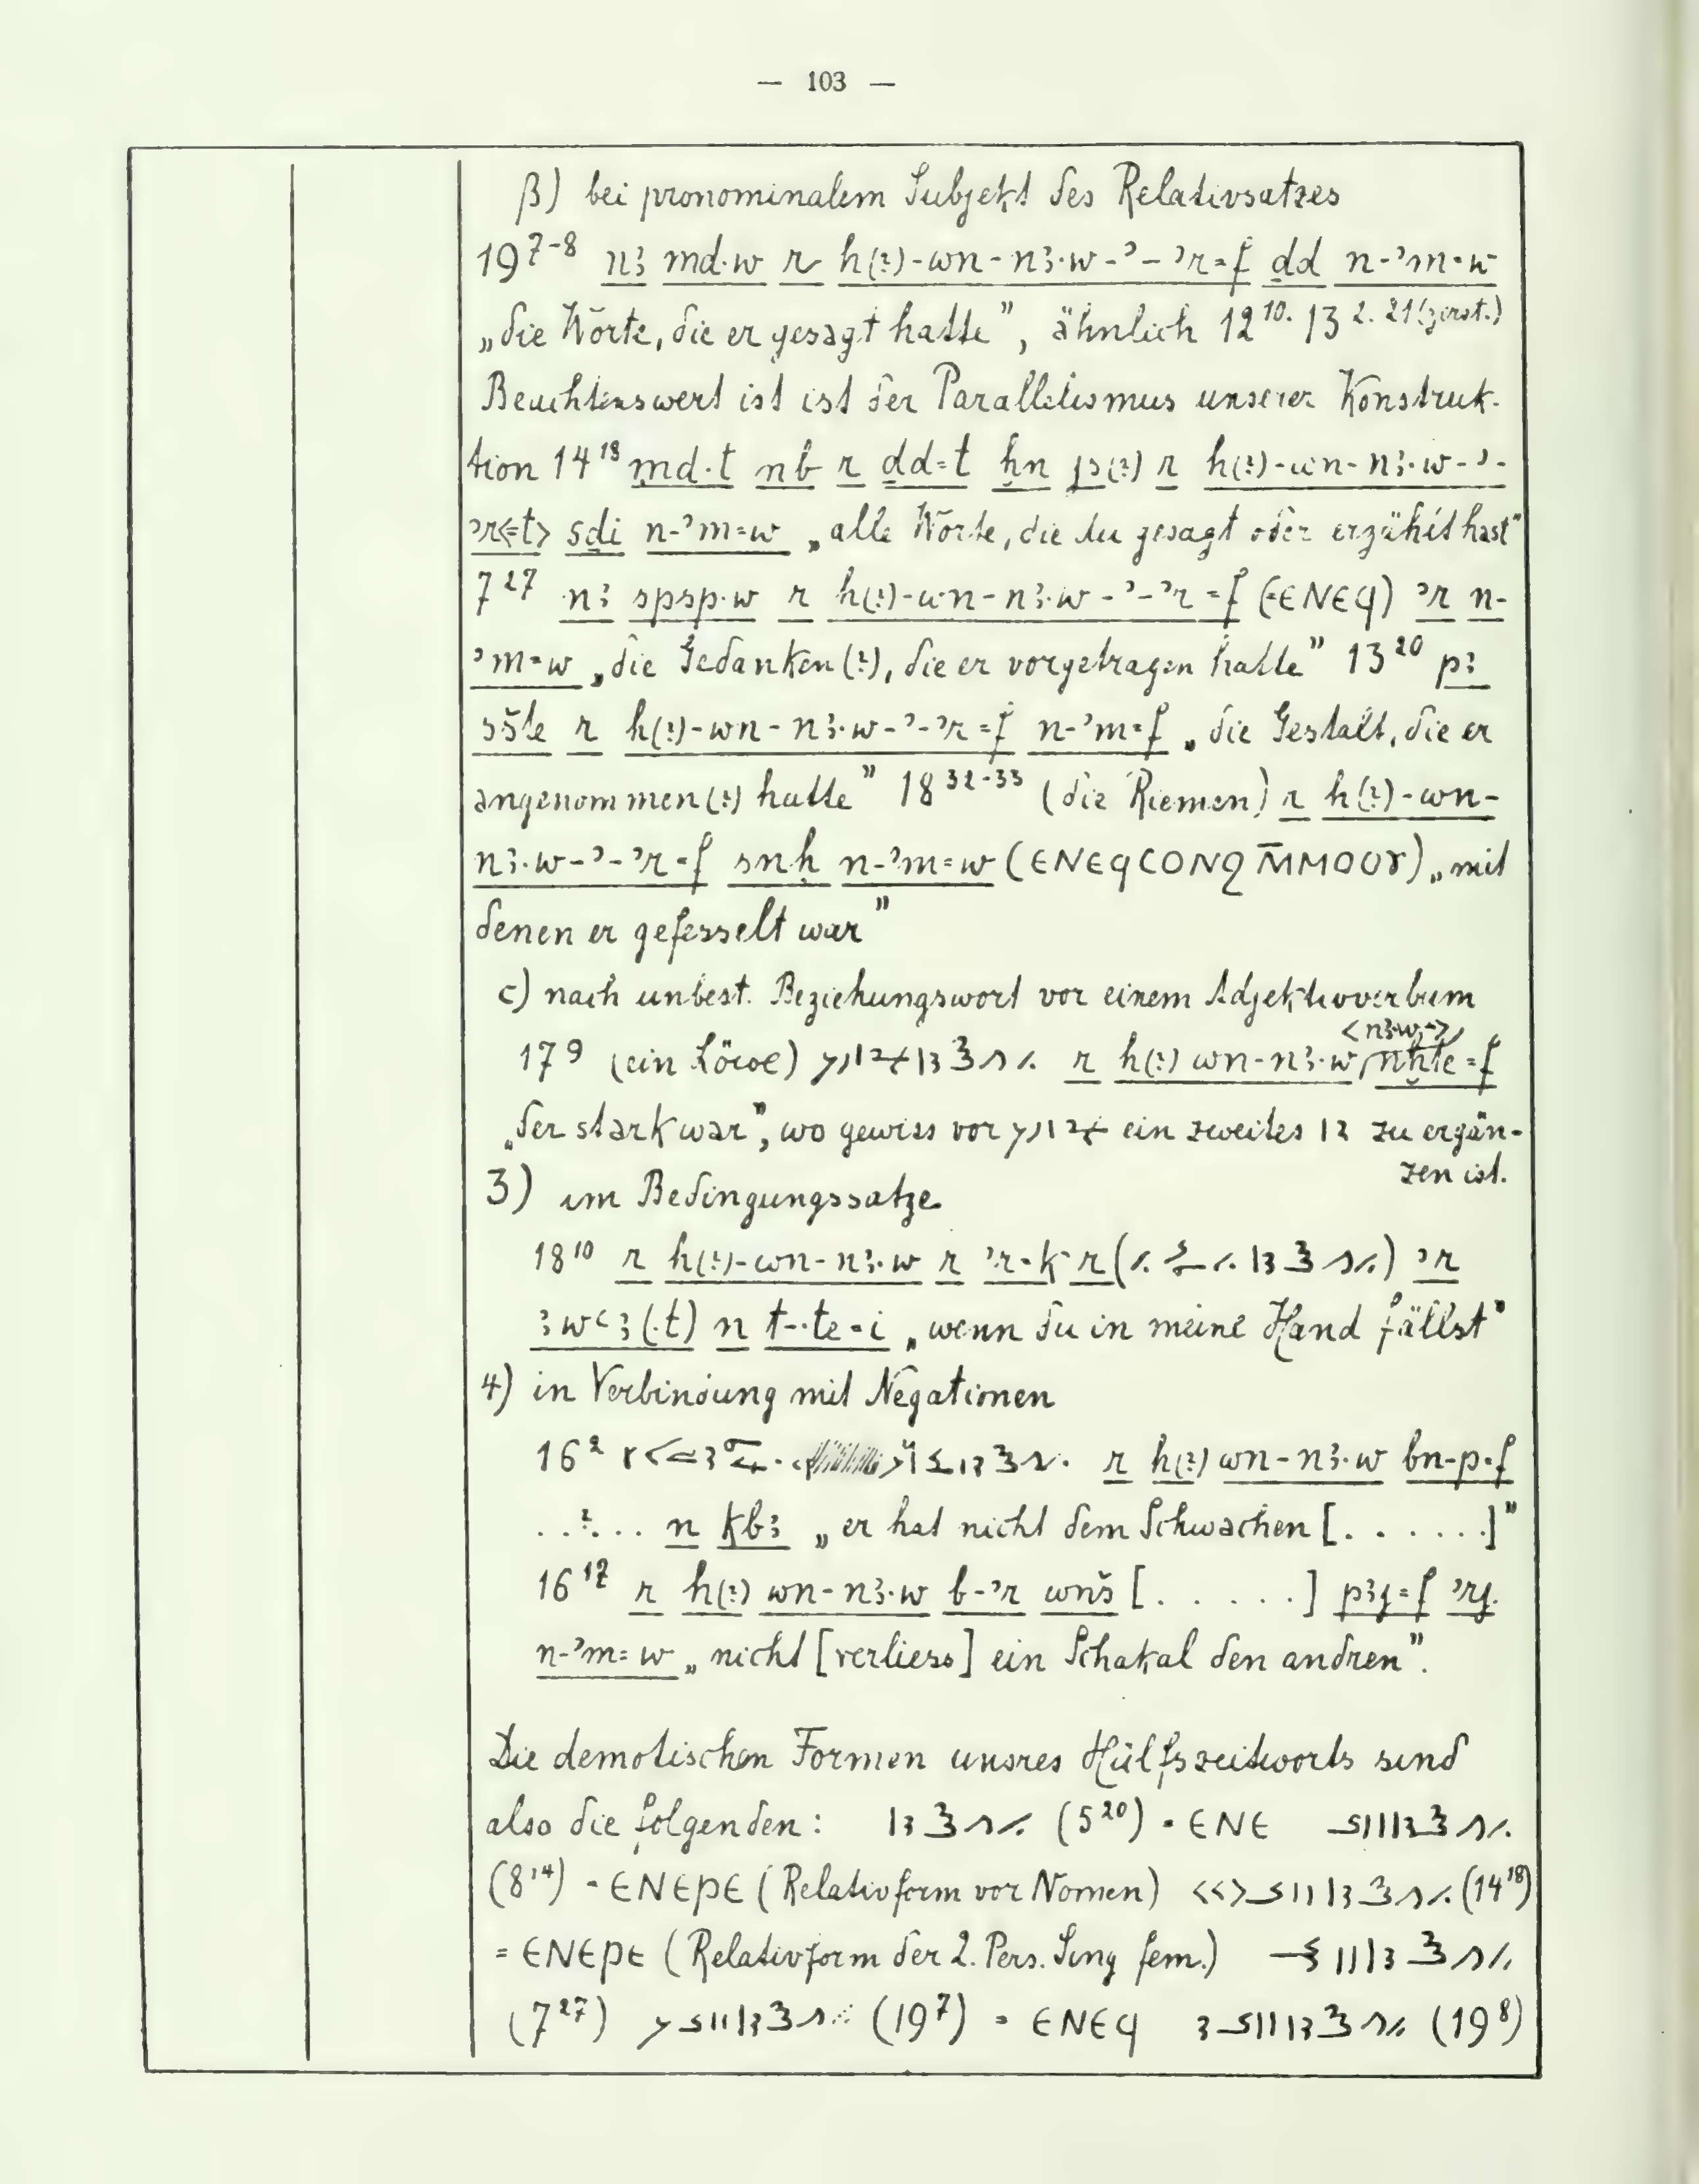 — 103 —
β) bei pronominalem Subjekt des Relativsatzes
19 7-8 nꜣ md·w r h(?)-wn-nꜣ·w-ʾ-ʾr=f ḏd n-ʾm=w
„die Worte, die er gesagt hatte”, ähnlich 12 10. 13 2. 21 (zerst.)
Beachtenswert ist ist der Parallelismus unserer Konstruk-
tion 14 18 md·t nb r ḏd=t ẖn (?) r h(?)-wn-nꜣ·w-ʾ-
ʾr<=t> sḏi n-ʾm=w „alle Worte, die du gesagt oder erzählt hast”
7 27 nꜣ spsp·w r h(?)-wn-nꜣ·w-ʾ-ʾr=f (=ⲈⲚⲈϤ) ʾr n-
ʾm=w „die Gedanken(?), die er vorgetragen hatte” 13 20 pꜣ
sšte r h(?)-wn-nꜣ·w-ʾ-ʾr=f n-ʾm=f „die Gestalt, die er
angenommen(?) hatte” 18 32-33 (die Riemen) r h(?)-wn-
nꜣ·w-ʾ-ʾr=f snḥ n-ʾm=w (ⲈⲚⲈϤⲤⲞⲚϨ Ⲙ̄ⲘⲞⲞⲨ) „mit
denen er gefesselt war”
c) nach unbest. Beziehungswort vor einem Adjektivverbum
<nꜣ·w->
17 9 (ein Löwe) r h(?) wn-nꜣ·w nḫte=f
„der stark war”, wo gewiss vor ein zweites zu ergän-
zen ist.
3) im Bedingungssatze
18 10 r h(?)-wn-nꜣ·w r ʾr-k r ( ) ʾr
ꜣwꜥꜣ(·t) n t-·te=i „wenn du in meine Hand fällst”
4) in Verbindung mit Negationen
16 2 r h(?) wn-nꜣ·w bn-p=f
..?... n kbꜣ „er hat nicht dem Schwachen [. . . . . .]”
16 12 r h(?) wn-nꜣ·w b-ʾr wnš [. . . . .] =f
n-ʾm=w „nicht [verliess] ein Schakal den andren”.
Die demotischen Formen unsres Hülfszeitworts sind
also die folgenden: (5 20) = ⲈⲚⲈ
(8 14) = ⲈⲚⲈⲢⲈ (Relativform vor Nomen) (14 18)
= ⲈⲚⲈⲢⲈ (Relativform der 2. Pers. Sing fem.)
(7 27) (19 7) = ⲈⲚⲈϤ (19 8)